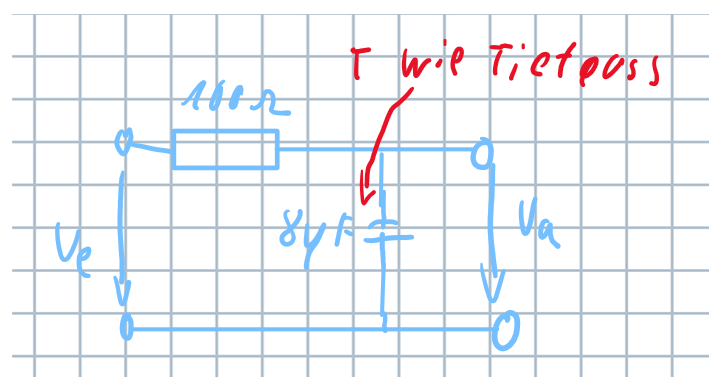 T wie Tiefpass
100Ω
8μF
Ue
Ua